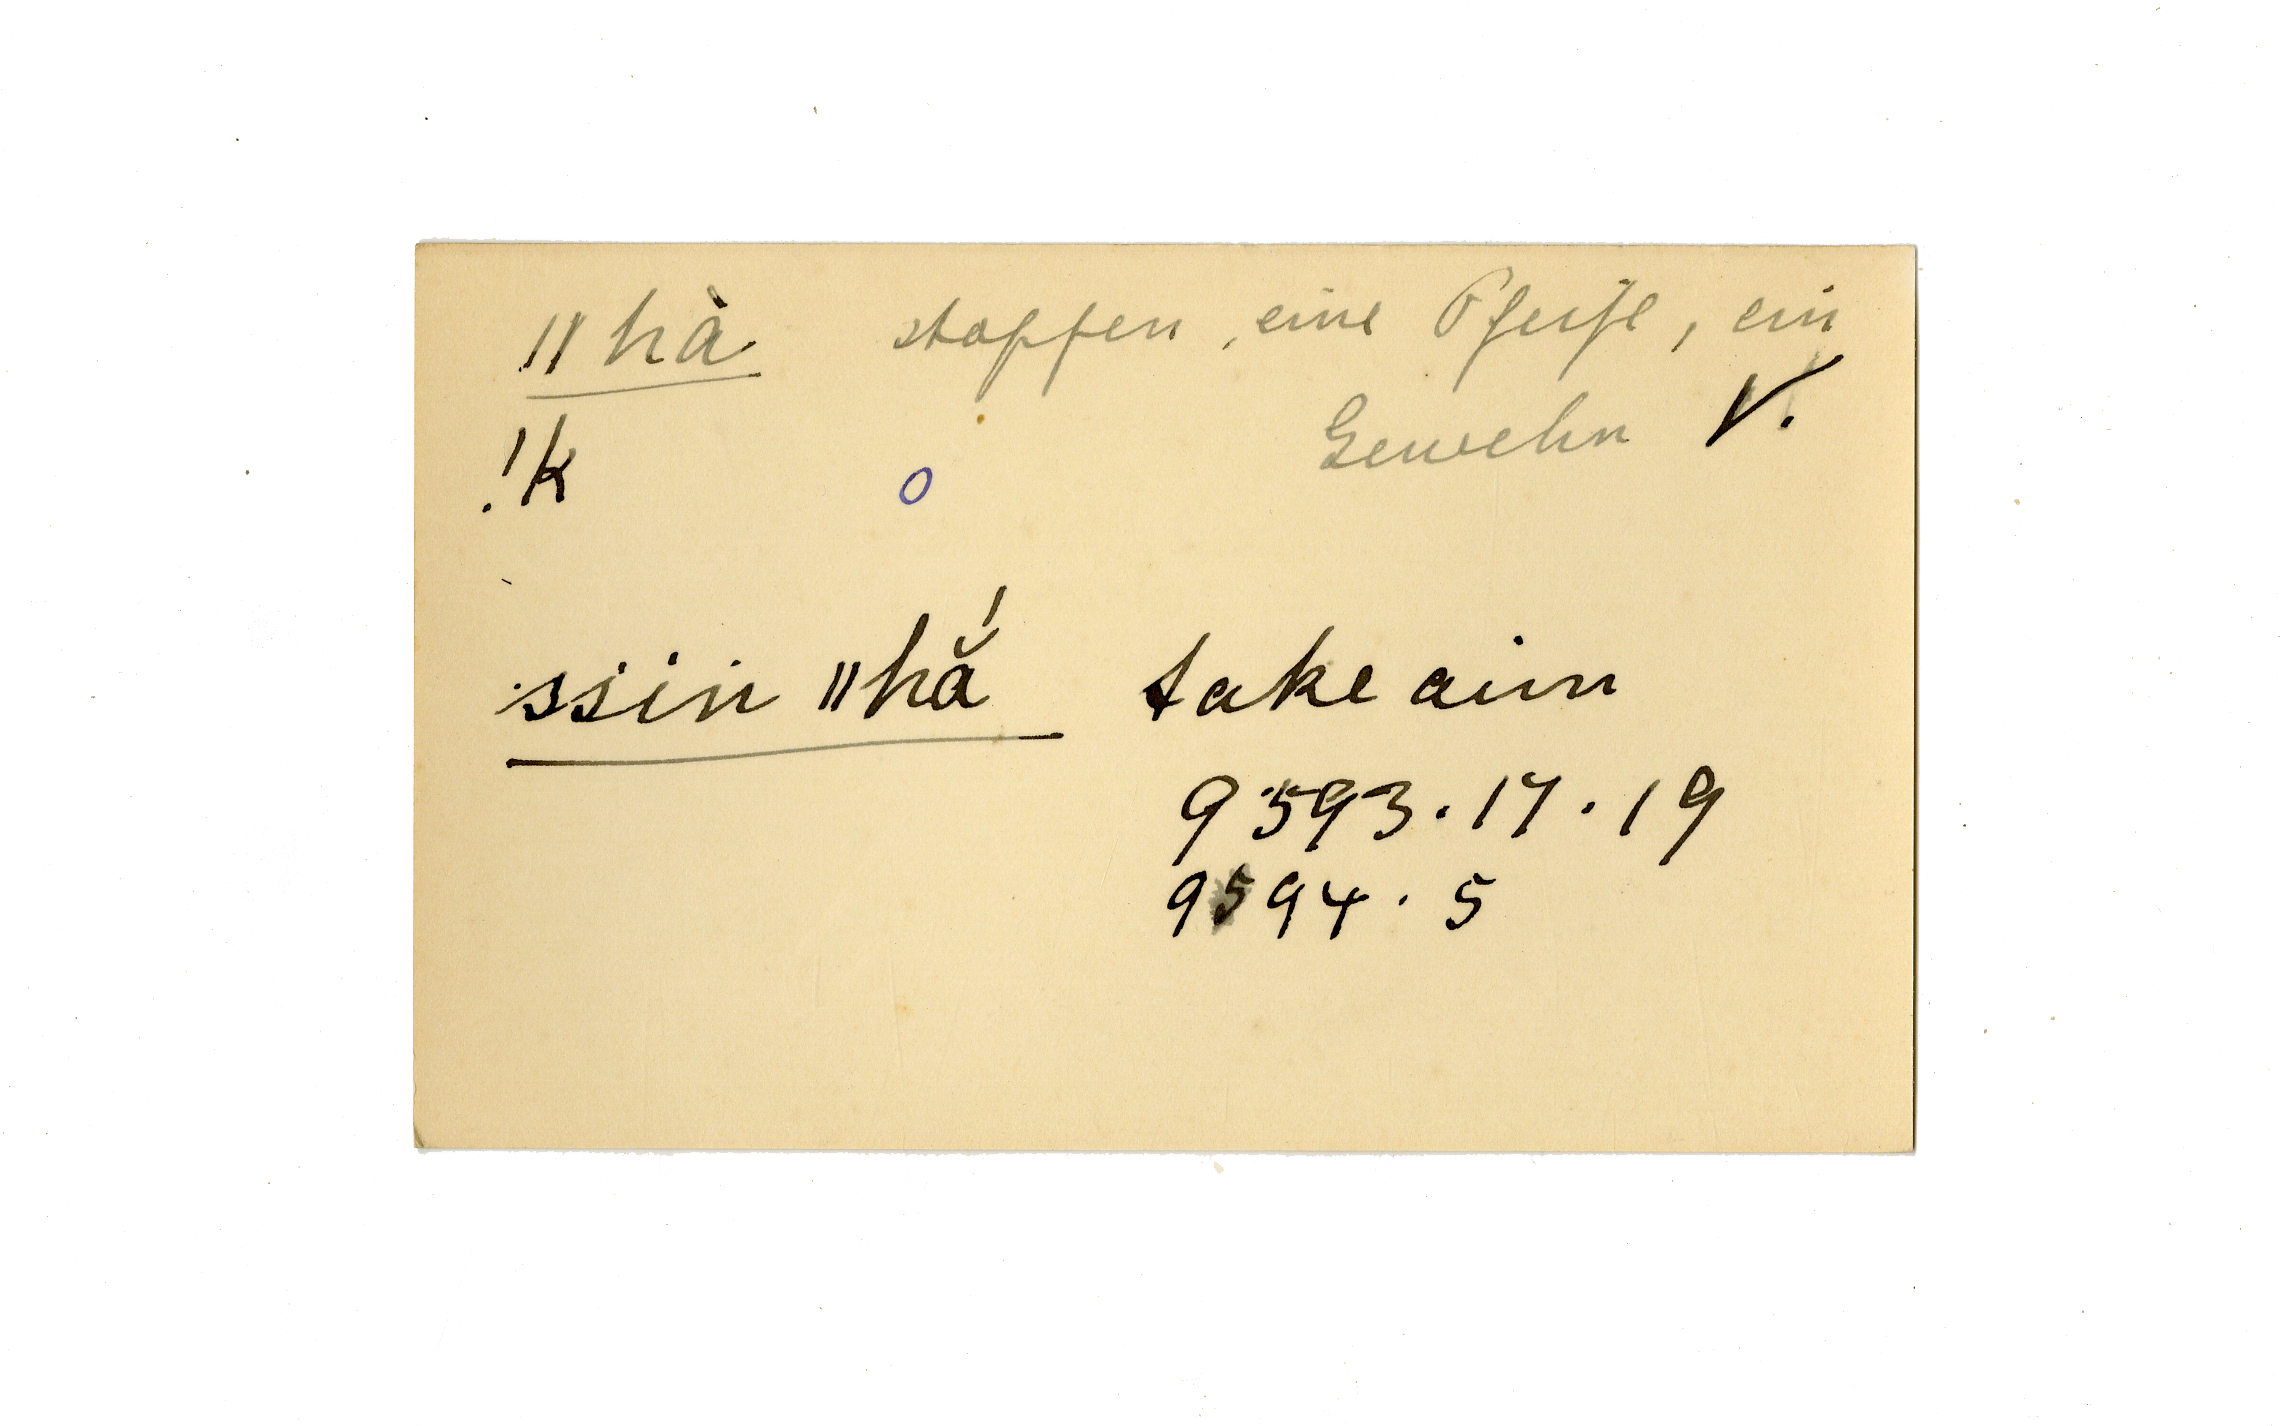 ǁhà stopfen, eine Pfeife, ein
Gewehr V.
!k o
ssin ǁhắ take aim
9593. 17. 19
9594. 5